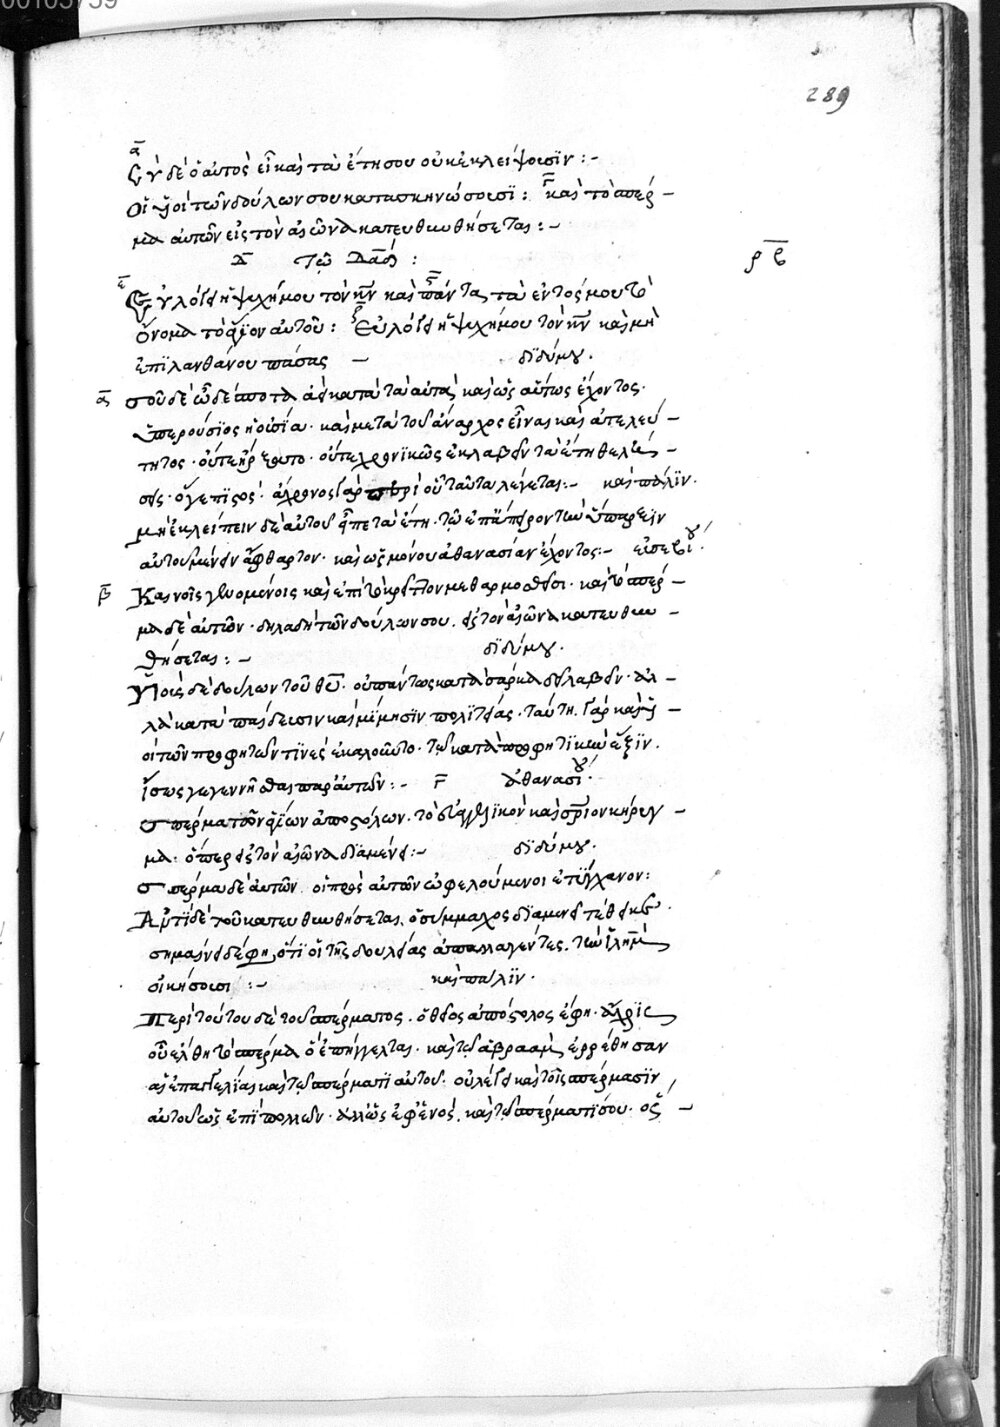 00105759
289
α
Σὺ δὲ ὁ αὐτὸς εἶ καὶ τὰ ἔτη σου οὐκ ἐκλείψουσϊν :-
Οἱ υἱοὶ τῶν δούλων σου κατασκηνώσουσϊ : καὶ τὸ σπέρ –
μα αὐτῶν εἰς τὸν αἰῶνα κατευθυνθήσεται :-
Τῷ Δαδ :
ρβ
Εὐλόγει ἡ ψυχή μου τὸν κν καὶ πάντα τὰ ἐντός μου τὸ
ὄνομα τὸ ἅγϊον αὐτοῦ : Εὐλόγει ἡ ψυχή μου τὸν κν καὶ μὴ
ἐπϊλανθάνου πάσας – δϊδύμου.
α σοῦ δὲ ὧδε ἀεὶ κατὰ τὰ αὐτὰ καὶ ὡς αὔτως ἔχοντος.
ὑπερούσϊος ἡ οὐσία. καὶ μετὰ τοῦ ἄναρχος εἶναι καὶ ἀτελεύ –
τητος. οὔτε χρονϊκῶς ἐκλαβεῖν τὰ ἔτη
ἄχρονος γὰρ περὶ οὗ ταῦτα λέγεται :- καὶ πάλϊν.
μὴ ἐκλείπειν δὲ αὐτοῦ τὰ ἔτη. ὕπαρξϊν
αὐτοῦ μένειν ἄφθαρτον. καὶ ὡς μόνου ἀθανασίαν ἔχοντος :- εὐσεβίου.
β Καινοῖς γενομένοις καὶ ἐπὶ τὸ κρεῖττον μεθαρμοσθεῖσι. καὶ τὸ σπέρ –
μα δὲ αὐτῶν. δηλαδὴ τῶν δούλων σου. εἰς τὸν αἰῶνα κατευθυν –
θήσεται :- δϊδύμου.
Υἱοὺς δὲ δούλων τοῦ θυ. οὐ πάντως κατὰ σάρκα συλαβεῖν. ἀλ –
λὰ κατὰ παίδευσιν καὶ μίμησϊν πολϊτείας. ταύτῃ γὰρ καὶ υἱ –
οἱ τῶν προφητῶν τϊνὲς ἐκαλοῦντο. τῷ κατὰ προφητϊκὴν ἕξϊν.
ἴσως γεγεννῆσθαι παρ' αὐτῶν :- γ ἀθανασίου.
Σπέρμα τῶν ἁγϊων ἀποστόλων. τὸ εὐαγγελϊκὸν καὶ σρϊον κήρυγ –
μα. ὅπερ εἰς τὸν αἰῶνα δϊαμένει :- δϊδύμου.
Σπέρμα δὲ αὐτῶν οἱ πρὸς αὐτῶν ὠφελούμενοι ἐτύγχανον :
Ἀντϊ δὲ τοῦ κατευθυνθήσεται. ὁ σύμμαχος δϊαμενεῖ τέθεικεν.
σημαίνει δέ φη, ὅτϊ οἱ τῆς δουλείας ἀπαλλαγέντες. τὴν ἱλημ
οἰκήσουσι :- καὶ πάλϊν.
Περὶ τούτου δὲ τοῦ σπέρματος. ὁ θεῖος ἀπόστολος ἔφη. ἄχρϊς
οὗ ἔλθῃ τὸ σπέρμα ὃ ἐπήγγελται. καὶ τῷ ἀβραὰμ ἐρρέθησαν
αἱ ἐπαγγελίαι καὶ τῷ σπέρματϊ αὐτοῦ. οὐ λέγει καὶ τοῖς σπέρμασϊν
αὐτοῦ ὡς ἐπὶ πολλῶν. ἀλλ' ὡς ἐφ' ἑνός. καὶ τῷ σπέρματϊ σου. ὅς –